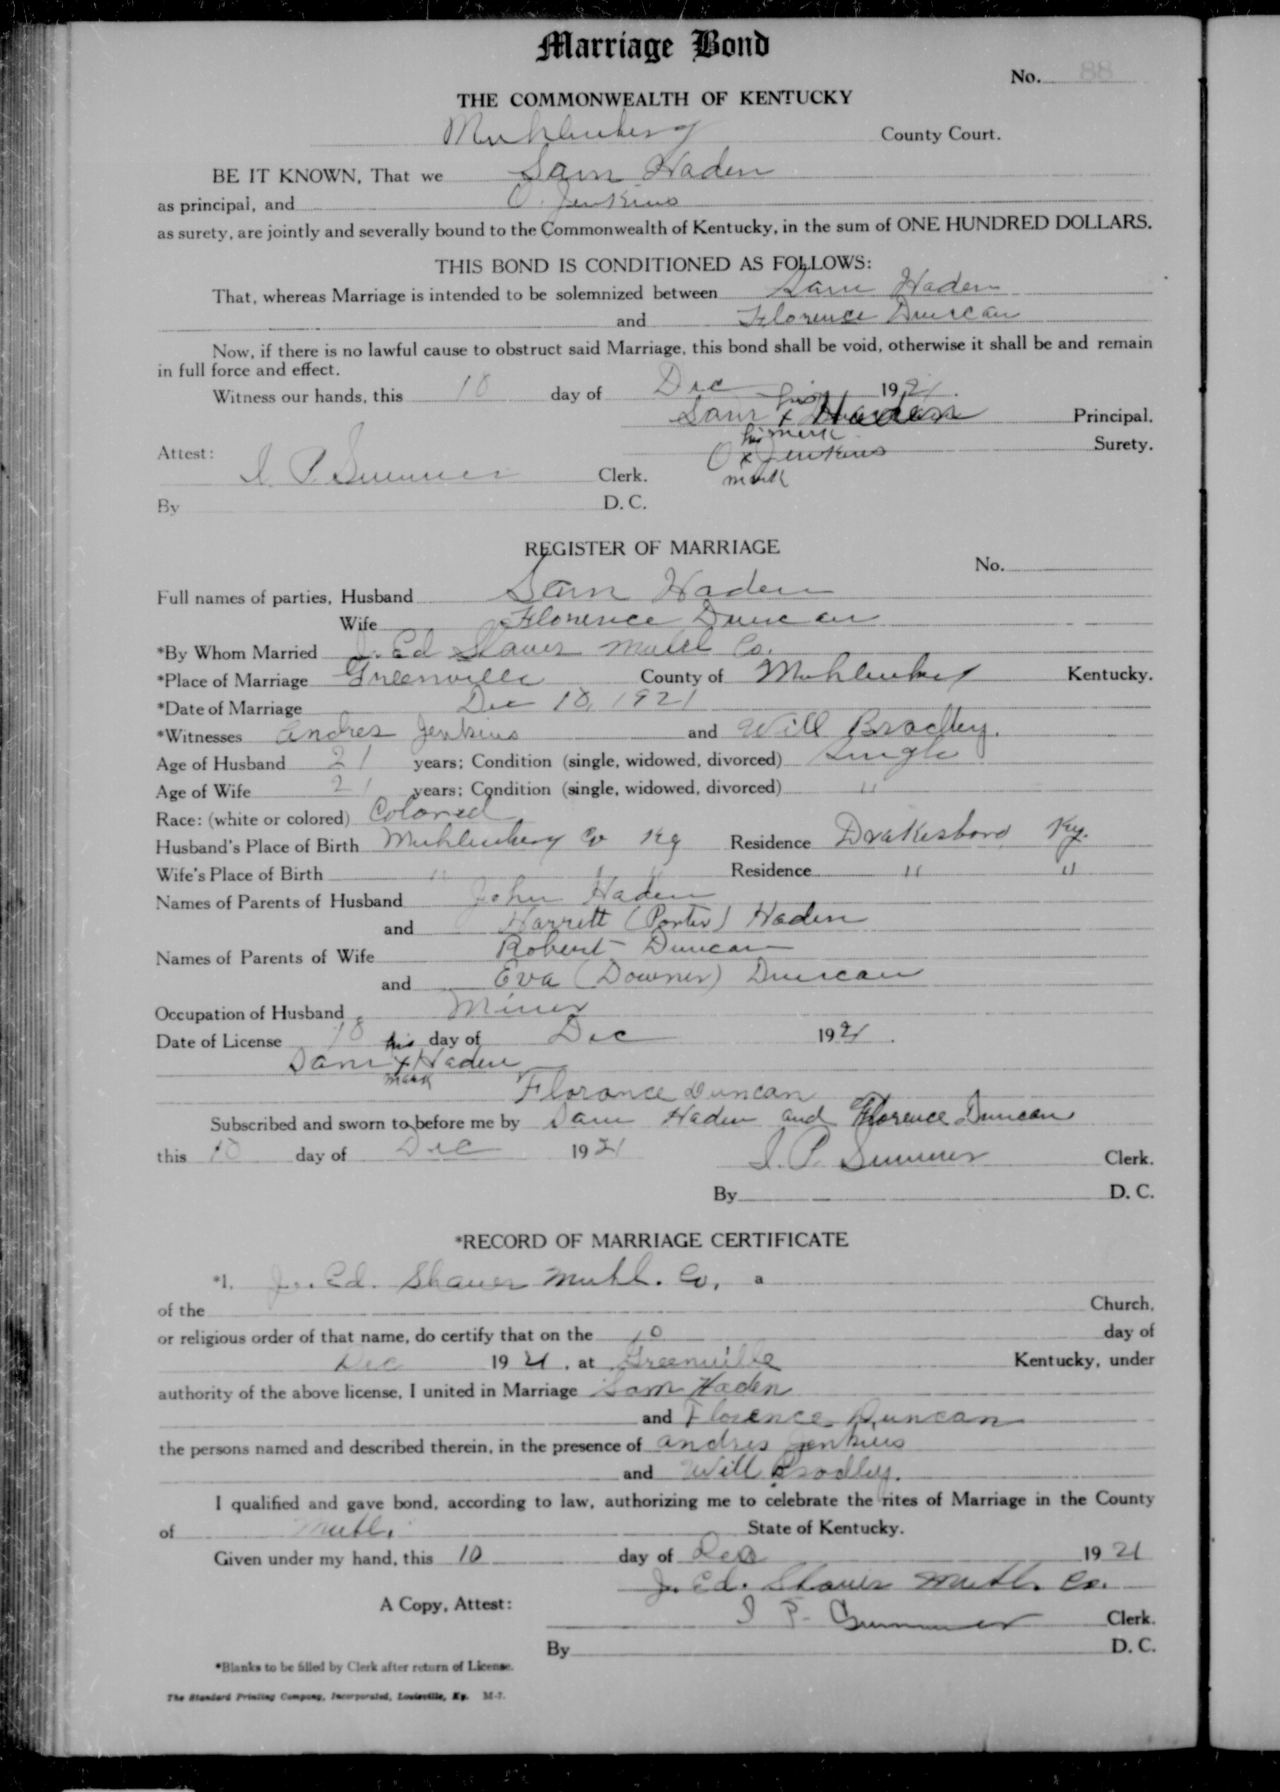 Marriage Bond
No. 88
THE COMMONWEALTH OF KENTUCKY
Muhlenberg County Court.
BE IT KNOWN, That we Sam Haden
as principal, and O. Jenkins
as surety, are jointly and severally bound to the Commonwealth of Kentucky, in the sum of ONE HUNDRED DOLLARS.
THIS BOND IS CONDITIONED AS FOLLOWS:
That, whereas Marriage is intended to be solemnized between Sam Haden
and Florence Duncan
Now, if there is no lawful cause to obstruct said Marriage, this bond shall be void, otherwise it shall be and remain
in full force and effect.
Witness our hands, this 10 day of Dec 1921.
his
Sam x Haden Principal.
mark
his
O x Jenkins Surety.
mark
Attest:
Clerk.
By D. C.
REGISTER OF MARRIAGE
No.
Full names of parties, Husband Sam Haden
Wife Florence Duncan
*By Whom Married J. Ed Shaver Muhl Co.
*Place of Marriage Greenville County of Muhlenberg Kentucky.
*Date of Marriage Dec 10, 1921
*Witnesses Andres Jenkins and Will Bradley.
Age of Husband 21 years; Condition (single, widowed, divorced) Single
Age of Wife 21 years; Condition (single, widowed, divorced) "
Race: (white or colored) Colored
Husband's Place of Birth Muhlenberg Co Ky Residence Drakesboro Ky.
Wife's Place of Birth " " " Residence " "
Names of Parents of Husband John Haden
and Harrett (Porter) Haden
Names of Parents of Wife Robert Duncan
and Eva (Downer) Duncan
Occupation of Husband Miner
Date of License 10 day of Dec 1921.
his
Sam x Haden
mark
Florance Duncan
Subscribed and sworn to before me by Sam Haden and Florence Duncan
this 10 day of Dec 1921
Clerk.
By D. C.
*RECORD OF MARRIAGE CERTIFICATE
*I, J. Ed. Shaver Muhl. Co. a
of the Church,
or religious order of that name, do certify that on the 10 day of
Dec 1921, at Greenville Kentucky, under
authority of the above license, I united in Marriage Sam Haden
and Florence Duncan
the persons named and described therein, in the presence of Andres Jenkins
and Will Bradley.
I qualified and gave bond, according to law, authorizing me to celebrate the rites of Marriage in the County
of Muhl. State of Kentucky.
Given under my hand, this 10 day of Dec 1921
J. Ed. Shaver Muhl. Co.
A Copy, Attest:
Clerk.
By D. C.
*Blanks to be filled by Clerk after return of License.
The Standard Printing Company, Incorporated, Louisville, Ky. M-7.